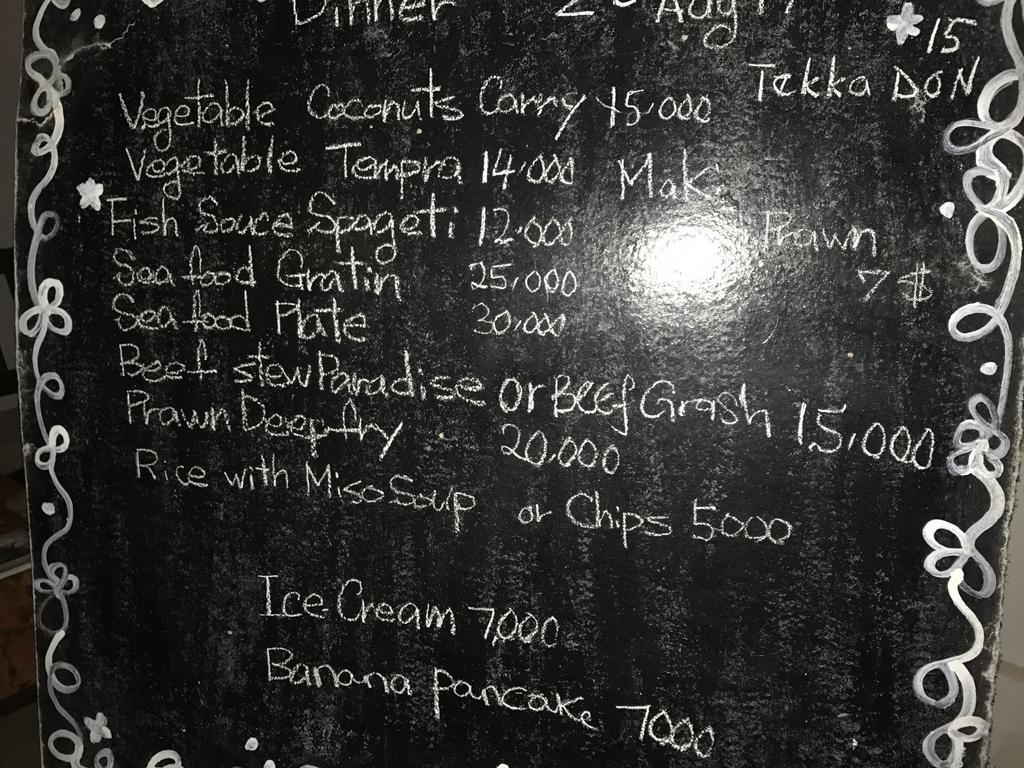 Dinner 2 Aug 17
15
Tekka DON
Vegetable Coconuts Carry 15.000
Vegetable Tempra 14,000 Maki
Fish Sauce Spageti 12.000
Prawn
Sea food Gratin 25,000
7 $
Sea food Plate 30,000
Beef stew Paradise or Beef Grash 15,000
Prawn Deep fry 20,000
Rice with Miso Soup or Chips 5000
Ice Cream 7,000
Banana pancake 7000